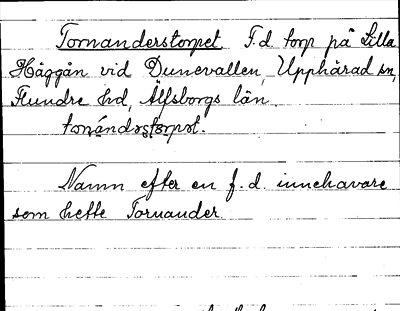 Tornanderstorpet F.d. torp på Lilla
Häggån vid Dunevallen, Upphärad sn,
Flundre hd, Älfsborgs län.
Namn efter en f.d. innehavare
som hette Tornander